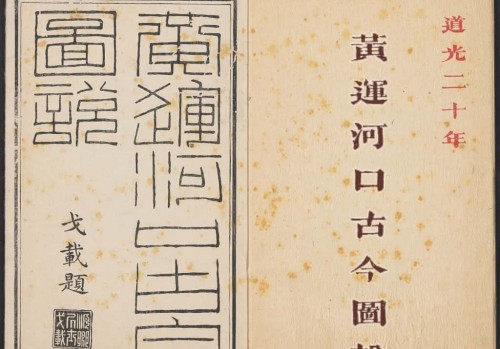 道光二十年
黃運河口古今圖
黃運河口古
圖說
戈載題